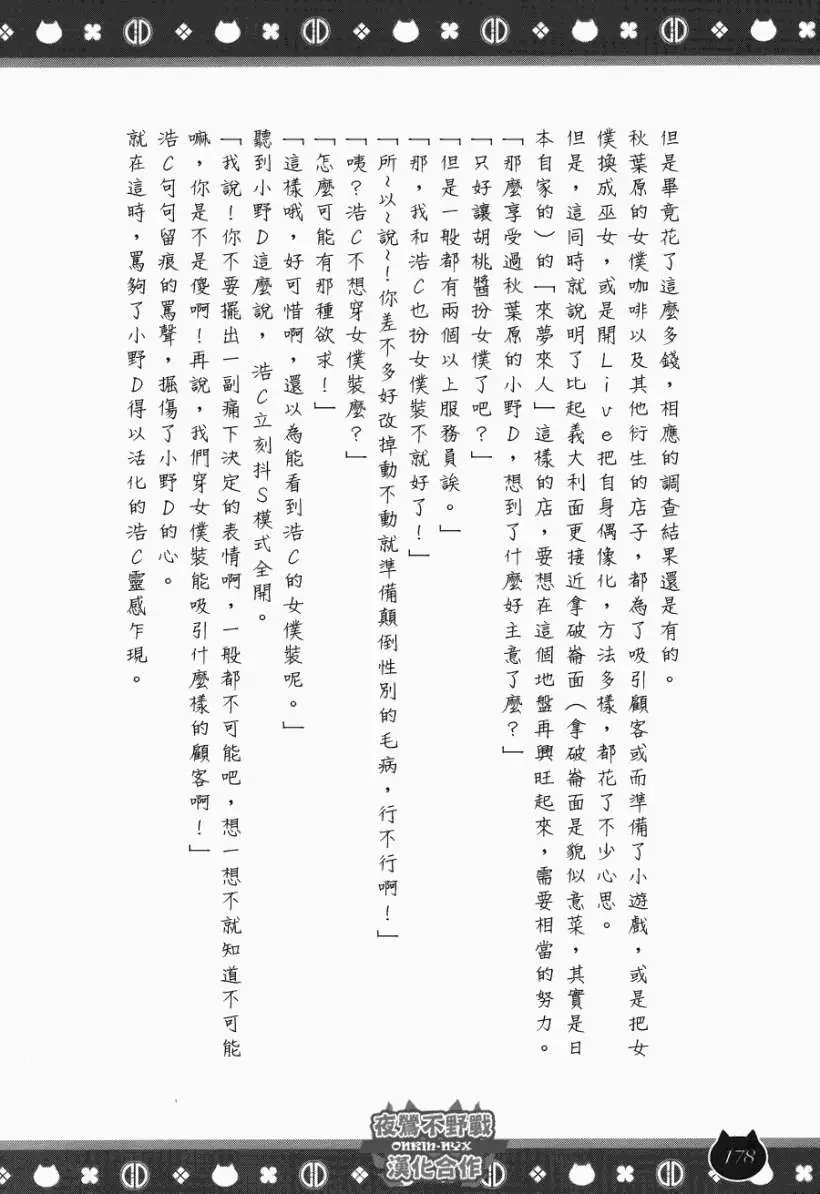 但是畢竟花了這麼多錢，相應的調查結果還是有的。
秋葉原的女僕咖啡以及其他衍生的店子，都為了吸引顧客或而準備了小遊戲，或是把女
僕換成巫女，或是開Live把自身偶像化，方法多樣，都花了不少心思。
但是，這同時就說明了比起義大利面更接近拿破崙面（拿破崙面是貌似意菜，其實是日
本自家的）的「來夢來人」這樣的店，要想在這個地盤再興旺起來，需要相當的努力。
「那麼享受過秋葉原的小野D，想到了什麼好主意了麼？」
「只好讓胡桃醬扮女僕了吧？」
「但是一般都有兩個以上服務員誒。」
「那，我和浩C也扮女僕裝不就好了！」
「所~以~說~！你差不多好改掉動不動就準備顛倒性別的毛病，行不行啊！」
「咦？浩C不想穿女僕裝麼？」
「怎麼可能有那種欲求！」
「這樣哦，好可惜啊，還以為能看到浩C的女僕裝呢。」
聽到小野D這麼說，浩C立刻抖S模式全開。
「我說！你不要擺出一副痛下決定的表情啊，一般都不可能吧，想一想不就知道不可能
嘛，你是不是傻啊！再說，我們穿女僕裝能吸引什麼樣的顧客啊！」
浩C句句留痕的罵聲，掘傷了小野D的心。
就在這時，罵夠了小野D得以活化的浩C靈感乍現。
夜鶯不野戰
ONKIN-HYX
漢化合作
178